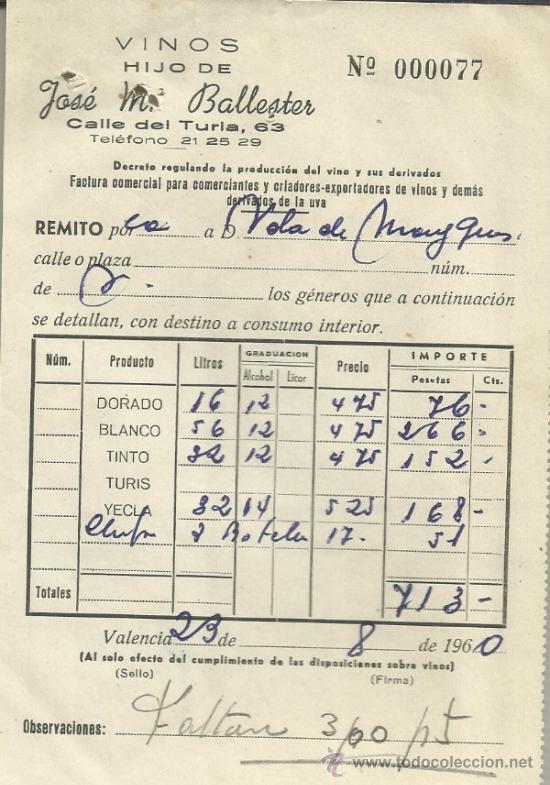 VINOS
HIJO DE
José Mª Ballester
Calle del Turia, 63
Teléfono 21 25 29
Nº 000077
Decreto regulando la producción del vino y sus derivados
Factura comercial para comerciantes y criadores-exportadores de vinos y demás
derivados de la uva
REMITO por a D. Vda de
calle o plaza núm.
de los géneros que a continuación
se detallan, con destino a consumo interior.
Núm. Producto Litros GRADUACION Alcohol Licor Precio IMPORTE Pesetas Cts.
DORADO 16 12 475 76 -
BLANCO 56 12 475 266 -
TINTO 32 12 475 152 -
TURIS
YECLA 32 14 525 168 -
3 Botellas 17- 51
Totales 713 -
Valencia 23 de 8 de 1960
(Al solo efecto del cumplimiento de las disposiciones sobre vinos)
(Sello) (Firma)
Observaciones: Faltan 300 pts
todocoleccion
www.todocoleccion.net